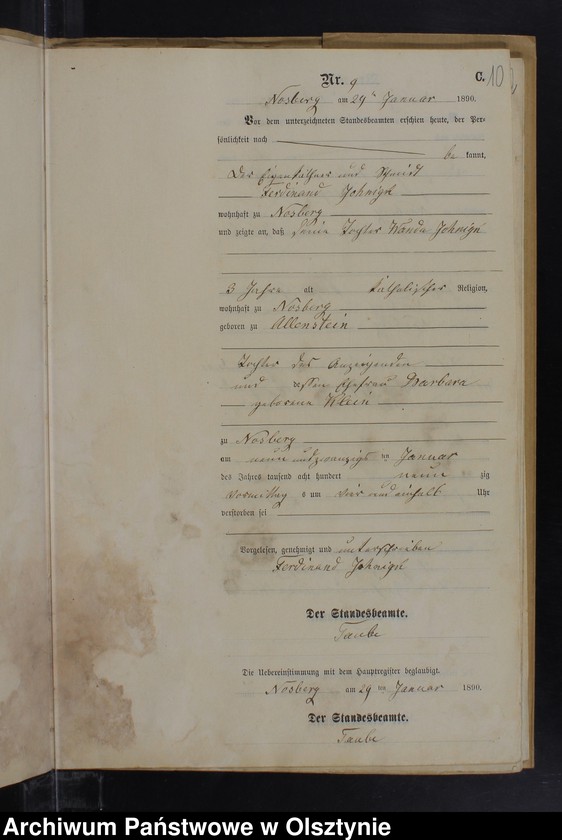 Nr. 9
C.
10
Nosberg am 29 Januar 1890.
Vor dem unterzeichneten Standesbeamten erschien heute, der Per-
sönlichkeit nach
be kannt,
Der Eigenkäthner und Schmidt
Ferdinand
wohnhaft zu Nosberg
und zeigte an, daß seine Tochter Wanda
3 Jahre alt katholischer Religion,
wohnhaft zu Nosberg
geboren zu Allenstein
Tochter des Anzeigenden
und dessen Ehefrau Barbara
geborene Klein
zu Nosberg
am neun und zwanzigsten Januar
des Jahres tausend acht hundert neun zig
Vormittag s um vier und einhalb Uhr
verstorben sei
Vorgelesen, genehmigt und unterschrieben
Ferdinand
Der Standesbeamte.
Taube
Die Uebereinstimmung mit dem Hauptregister beglaubigt.
Nosberg am 29 ten Januar 1890.
Der Standesbeamte.
Taube
Archiwum Państwowe w Olsztynie